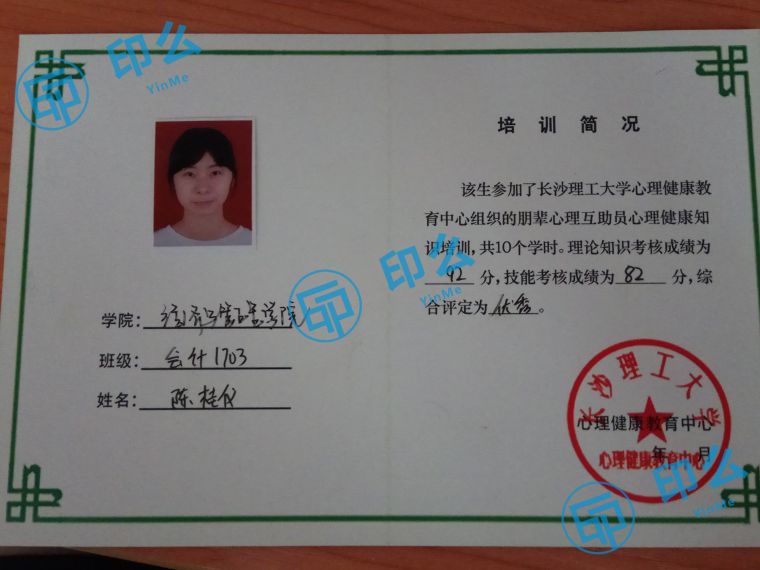 学院：经济与管理学院
班级：会计1703
姓名：陈桂仪
培训简况
该生参加了长沙理工大学心理健康教
育中心组织的朋辈心理互助员心理健康知
识培训，共10个学时。理论知识考核成绩为
92 分，技能考核成绩为 82 分，综
合评定为 优秀。
长沙理工大学
心理健康教育中心
年 月
心理健康教育中心
印么
YinMe
印么
YinMe
印么
YinMe